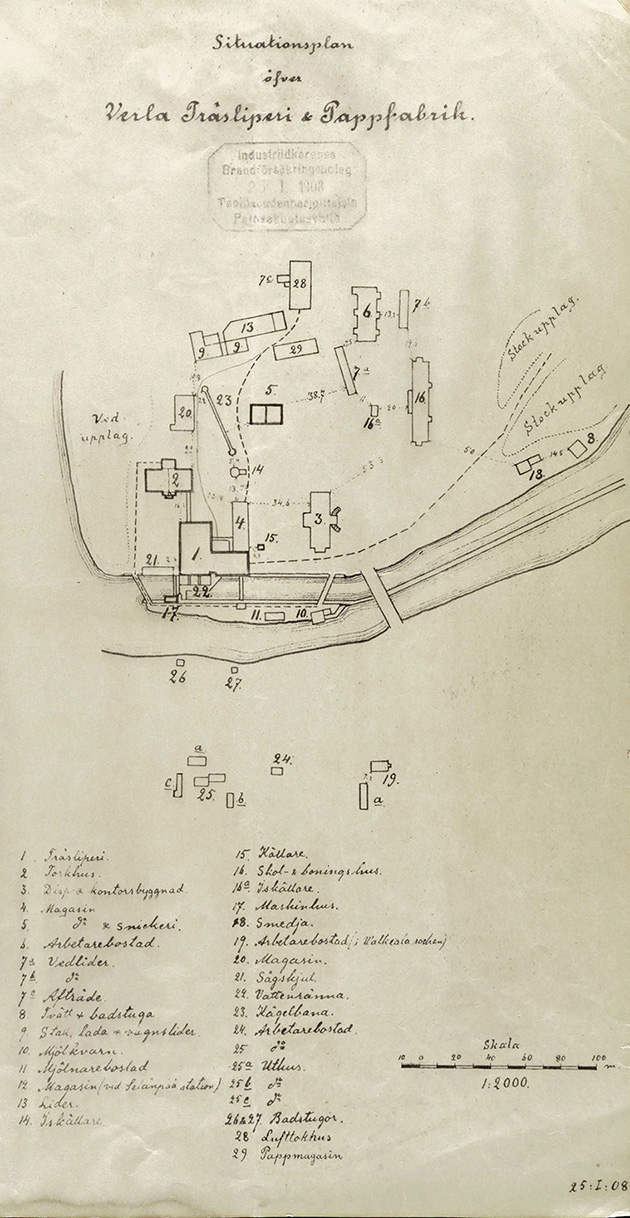 Situationsplan
öfver
Verla Träsliperi & Pappfabrik.
Industriidkarenes
Brandförsäkringsbolag
25 I 1908
7c
28
13
9
9
29
6
13.
7b
7a
16
16a
20
38.7
5.
23
20
Ved
upplag.
Stock upplag.
Stock upplag
50
53.5
14.5
18.
8.
14
2
4
34.6
3.
1.
15.
21.
22.
17.
11.
10.
26
27.
a
c
25.
b
24.
19.
a
1 Träsliperi.
2 Torkhus.
3. Disp & kontorsbyggnad.
4. Magasin
5. do & Snickeri.
6. Arbetarebostad.
7a Vedlider.
7b do
7c Afträde.
8 Tvätt & badstuga
9 Stall, lada & vagnslider.
10. Mjölkvarn.
11 Mjölnarebostad
12 Magasin (vid Selänpää station)
13 Lider.
14. Iskällare.
15. Källare.
16. Skol- & bonings.hus.
16a Iskällare.
17. Maskinhus.
18. Smedja.
19. Arbetarebostad (i Walkeala socken)
20. Magasin.
21. Sågskjul.
22. Vattenränna.
23. Kägelbana.
24. Arbetarebostad.
25 do
25a Uthus.
25b do
25c do
26&27. Badstugor.
28 Lufttokhus
29 Pappmagasin
Skala
10 0 20 40 60 80 100 m.
1:2000.
25:I:08